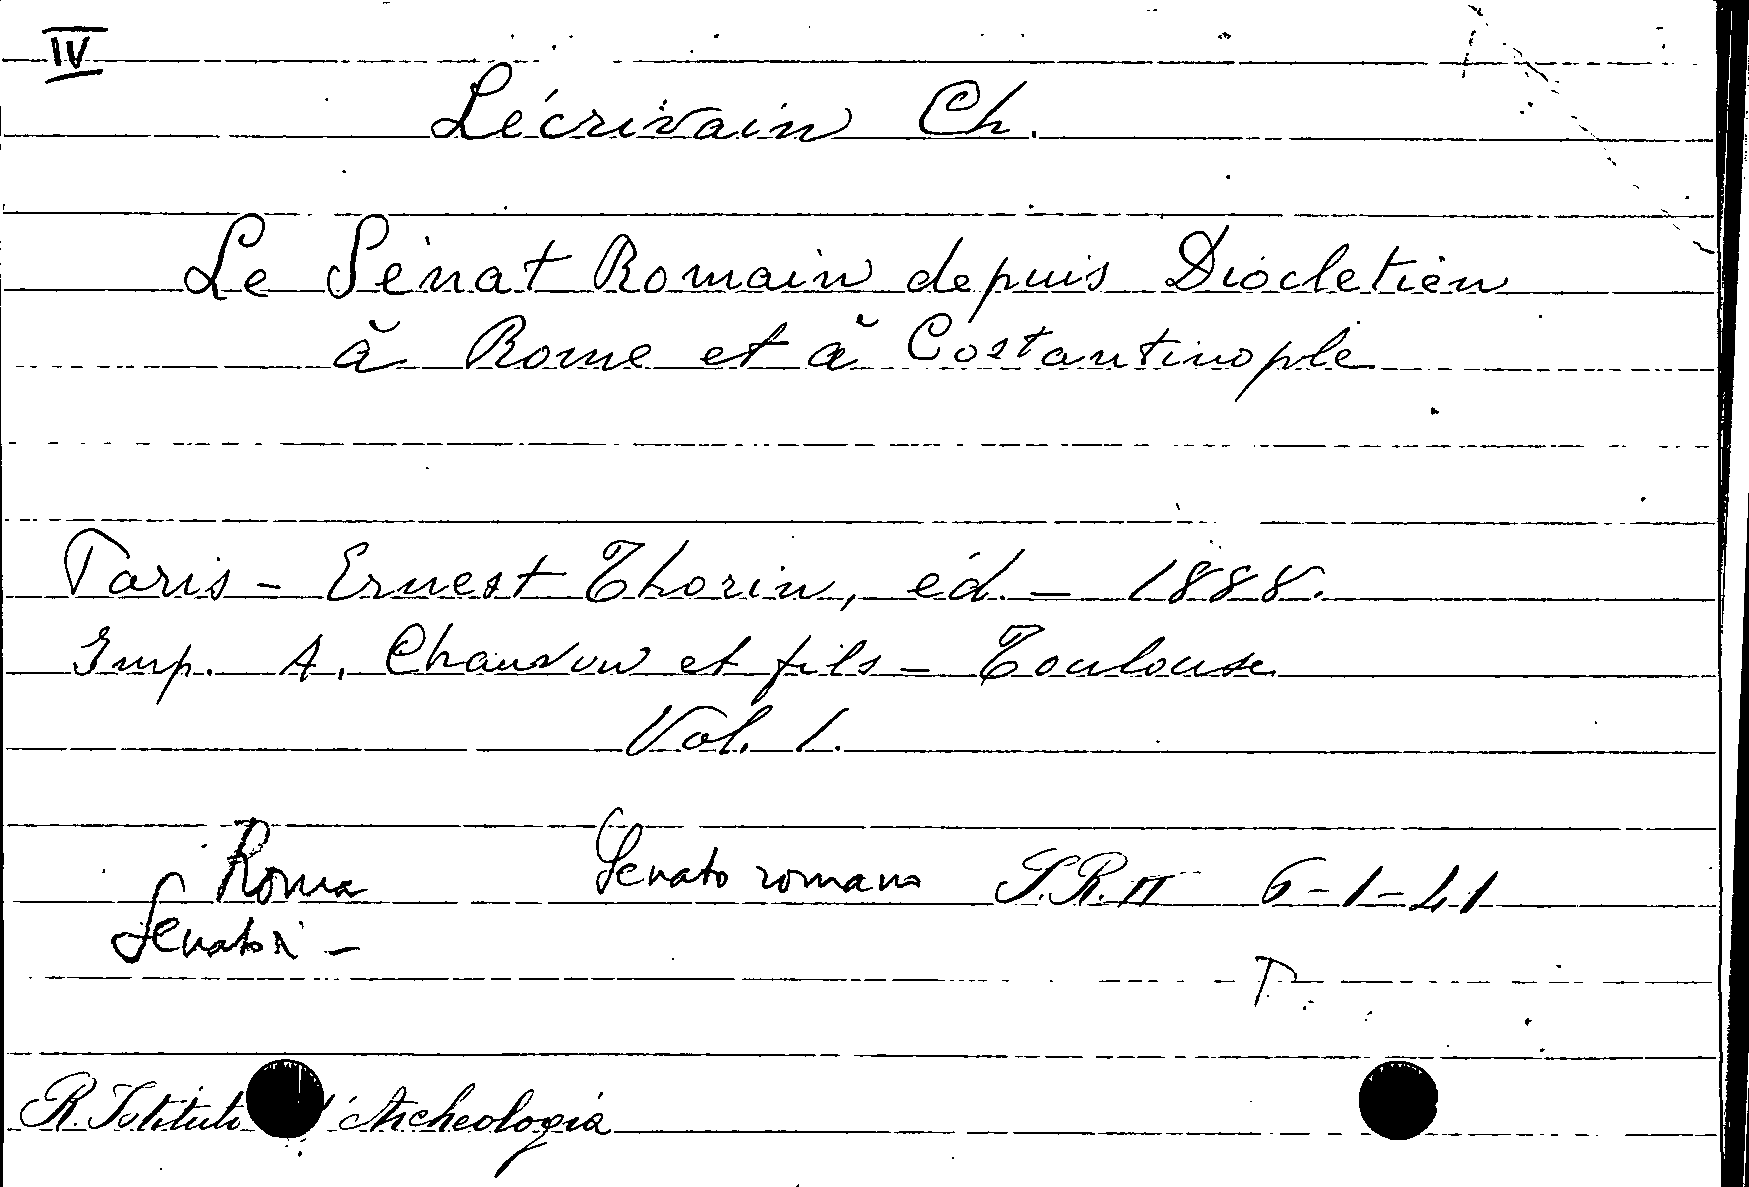 IV
Lécrivain Ch.
Le Sénat Romain depuis Dioclétien
à Rome et à Costantinople
Paris - Ernest Thorin, éd. - 1888.
Imp. A. Chauvin et fils - Toulouse
Vol. 1.
Roma Senato romano S.R. II 6-1-41
Senatori -
P.
R. Istituto d'Archeologia